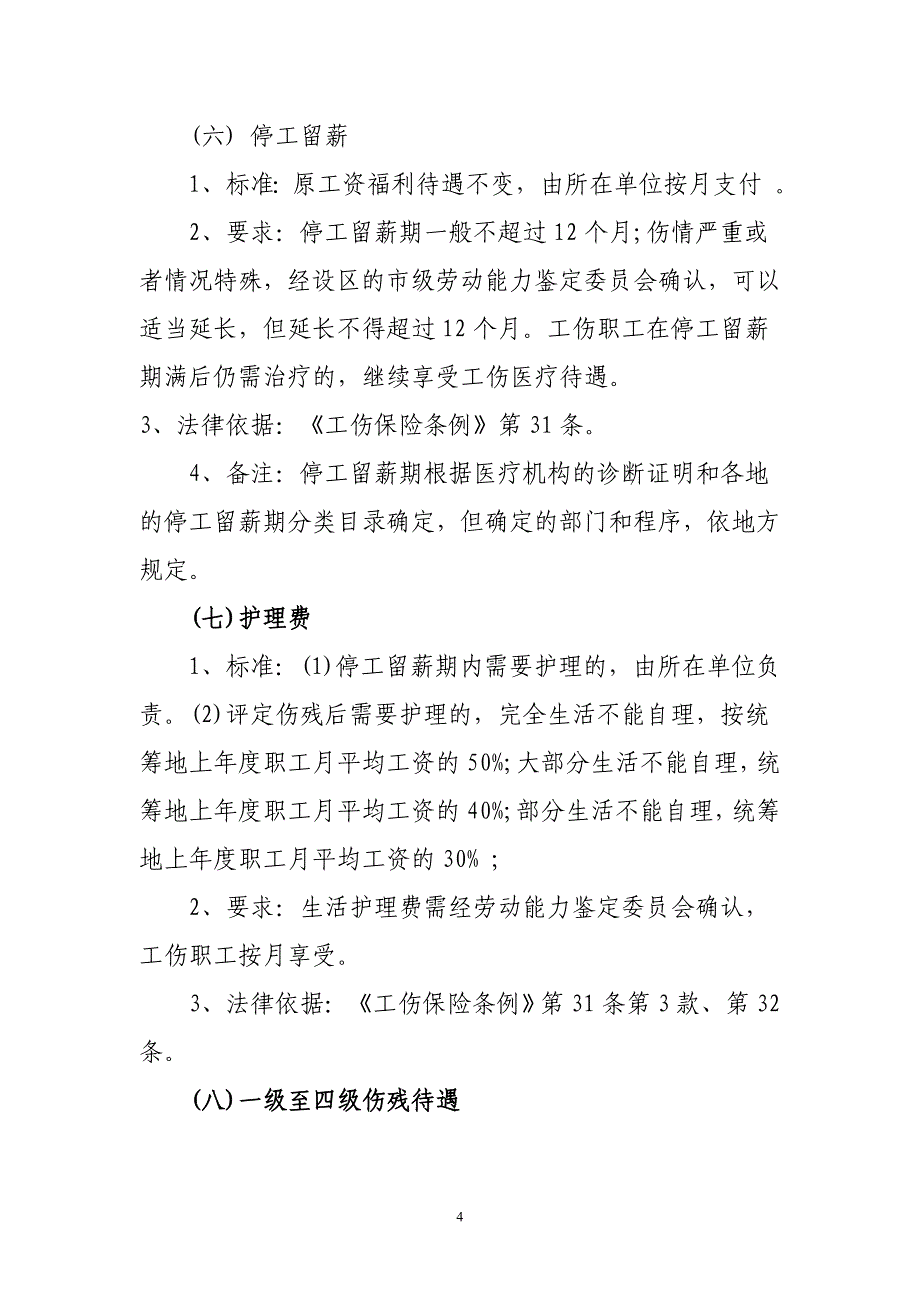 (六) 停工留薪
1、标准: 原工资福利待遇不变，由所在单位按月支付 。
2、要求: 停工留薪期一般不超过12个月;伤情严重或
者情况特殊，经设区的市级劳动能力鉴定委员会确认，可以
适当延长，但延长不得超过12个月。工伤职工在停工留薪
期满后仍需治疗的，继续享受工伤医疗待遇。
3、法律依据: 《工伤保险条例》第31条。
4、备注: 停工留薪期根据医疗机构的诊断证明和各地
的停工留薪期分类目录确定，但确定的部门和程序，依地方
规定。
(七)护理费
1、标准: (1)停工留薪期内需要护理的，由所在单位负
责。(2)评定伤残后需要护理的，完全生活不能自理，按统
筹地上年度职工月平均工资的50%;大部分生活不能自理，统
筹地上年度职工月平均工资的40%;部分生活不能自理，统筹
地上年度职工月平均工资的30% ;
2、要求: 生活护理费需经劳动能力鉴定委员会确认，
工伤职工按月享受。
3、法律依据: 《工伤保险条例》第31条第3款、第32
条。
(八)一级至四级伤残待遇
4